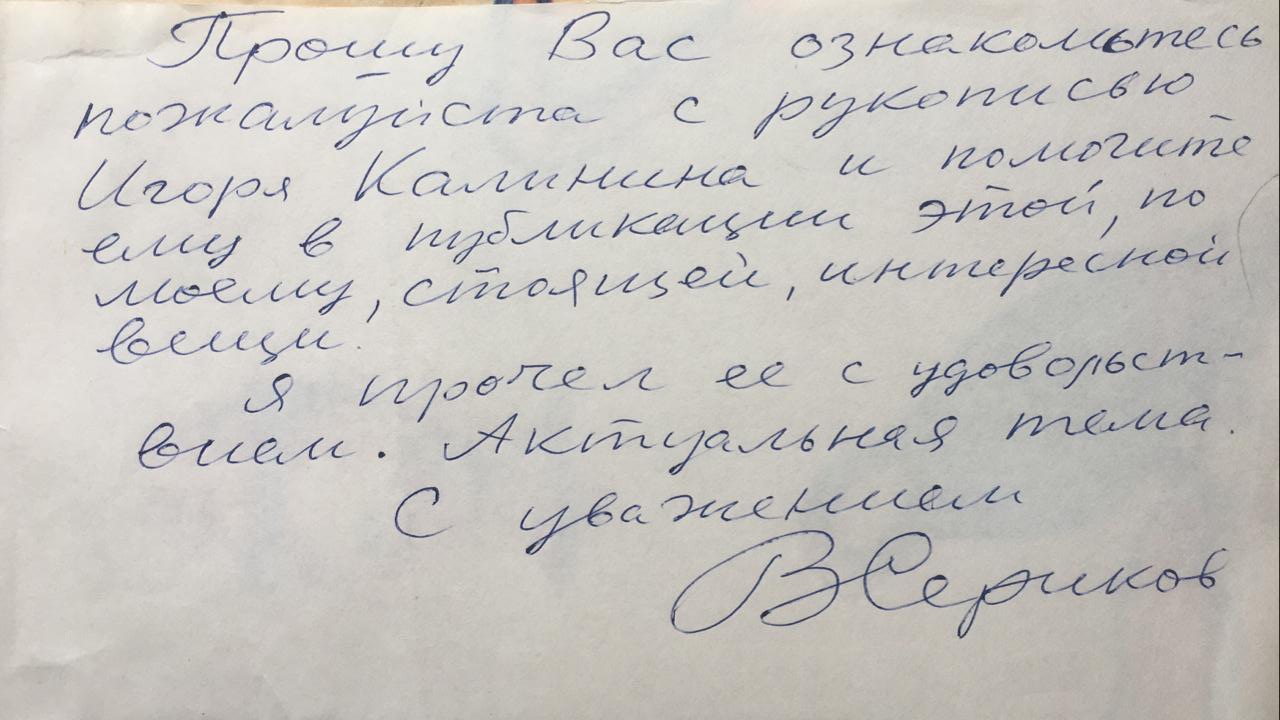 Прошу Вас ознакомьтесь
пожалуйста с рукописью
Игоря Калинина и помогите
ему в публикации этой, по
моему, стоящей, интересной
вещи.
Я прочел ее с удовольст-
вием. Актуальная тема.
С уважением
ВСериков